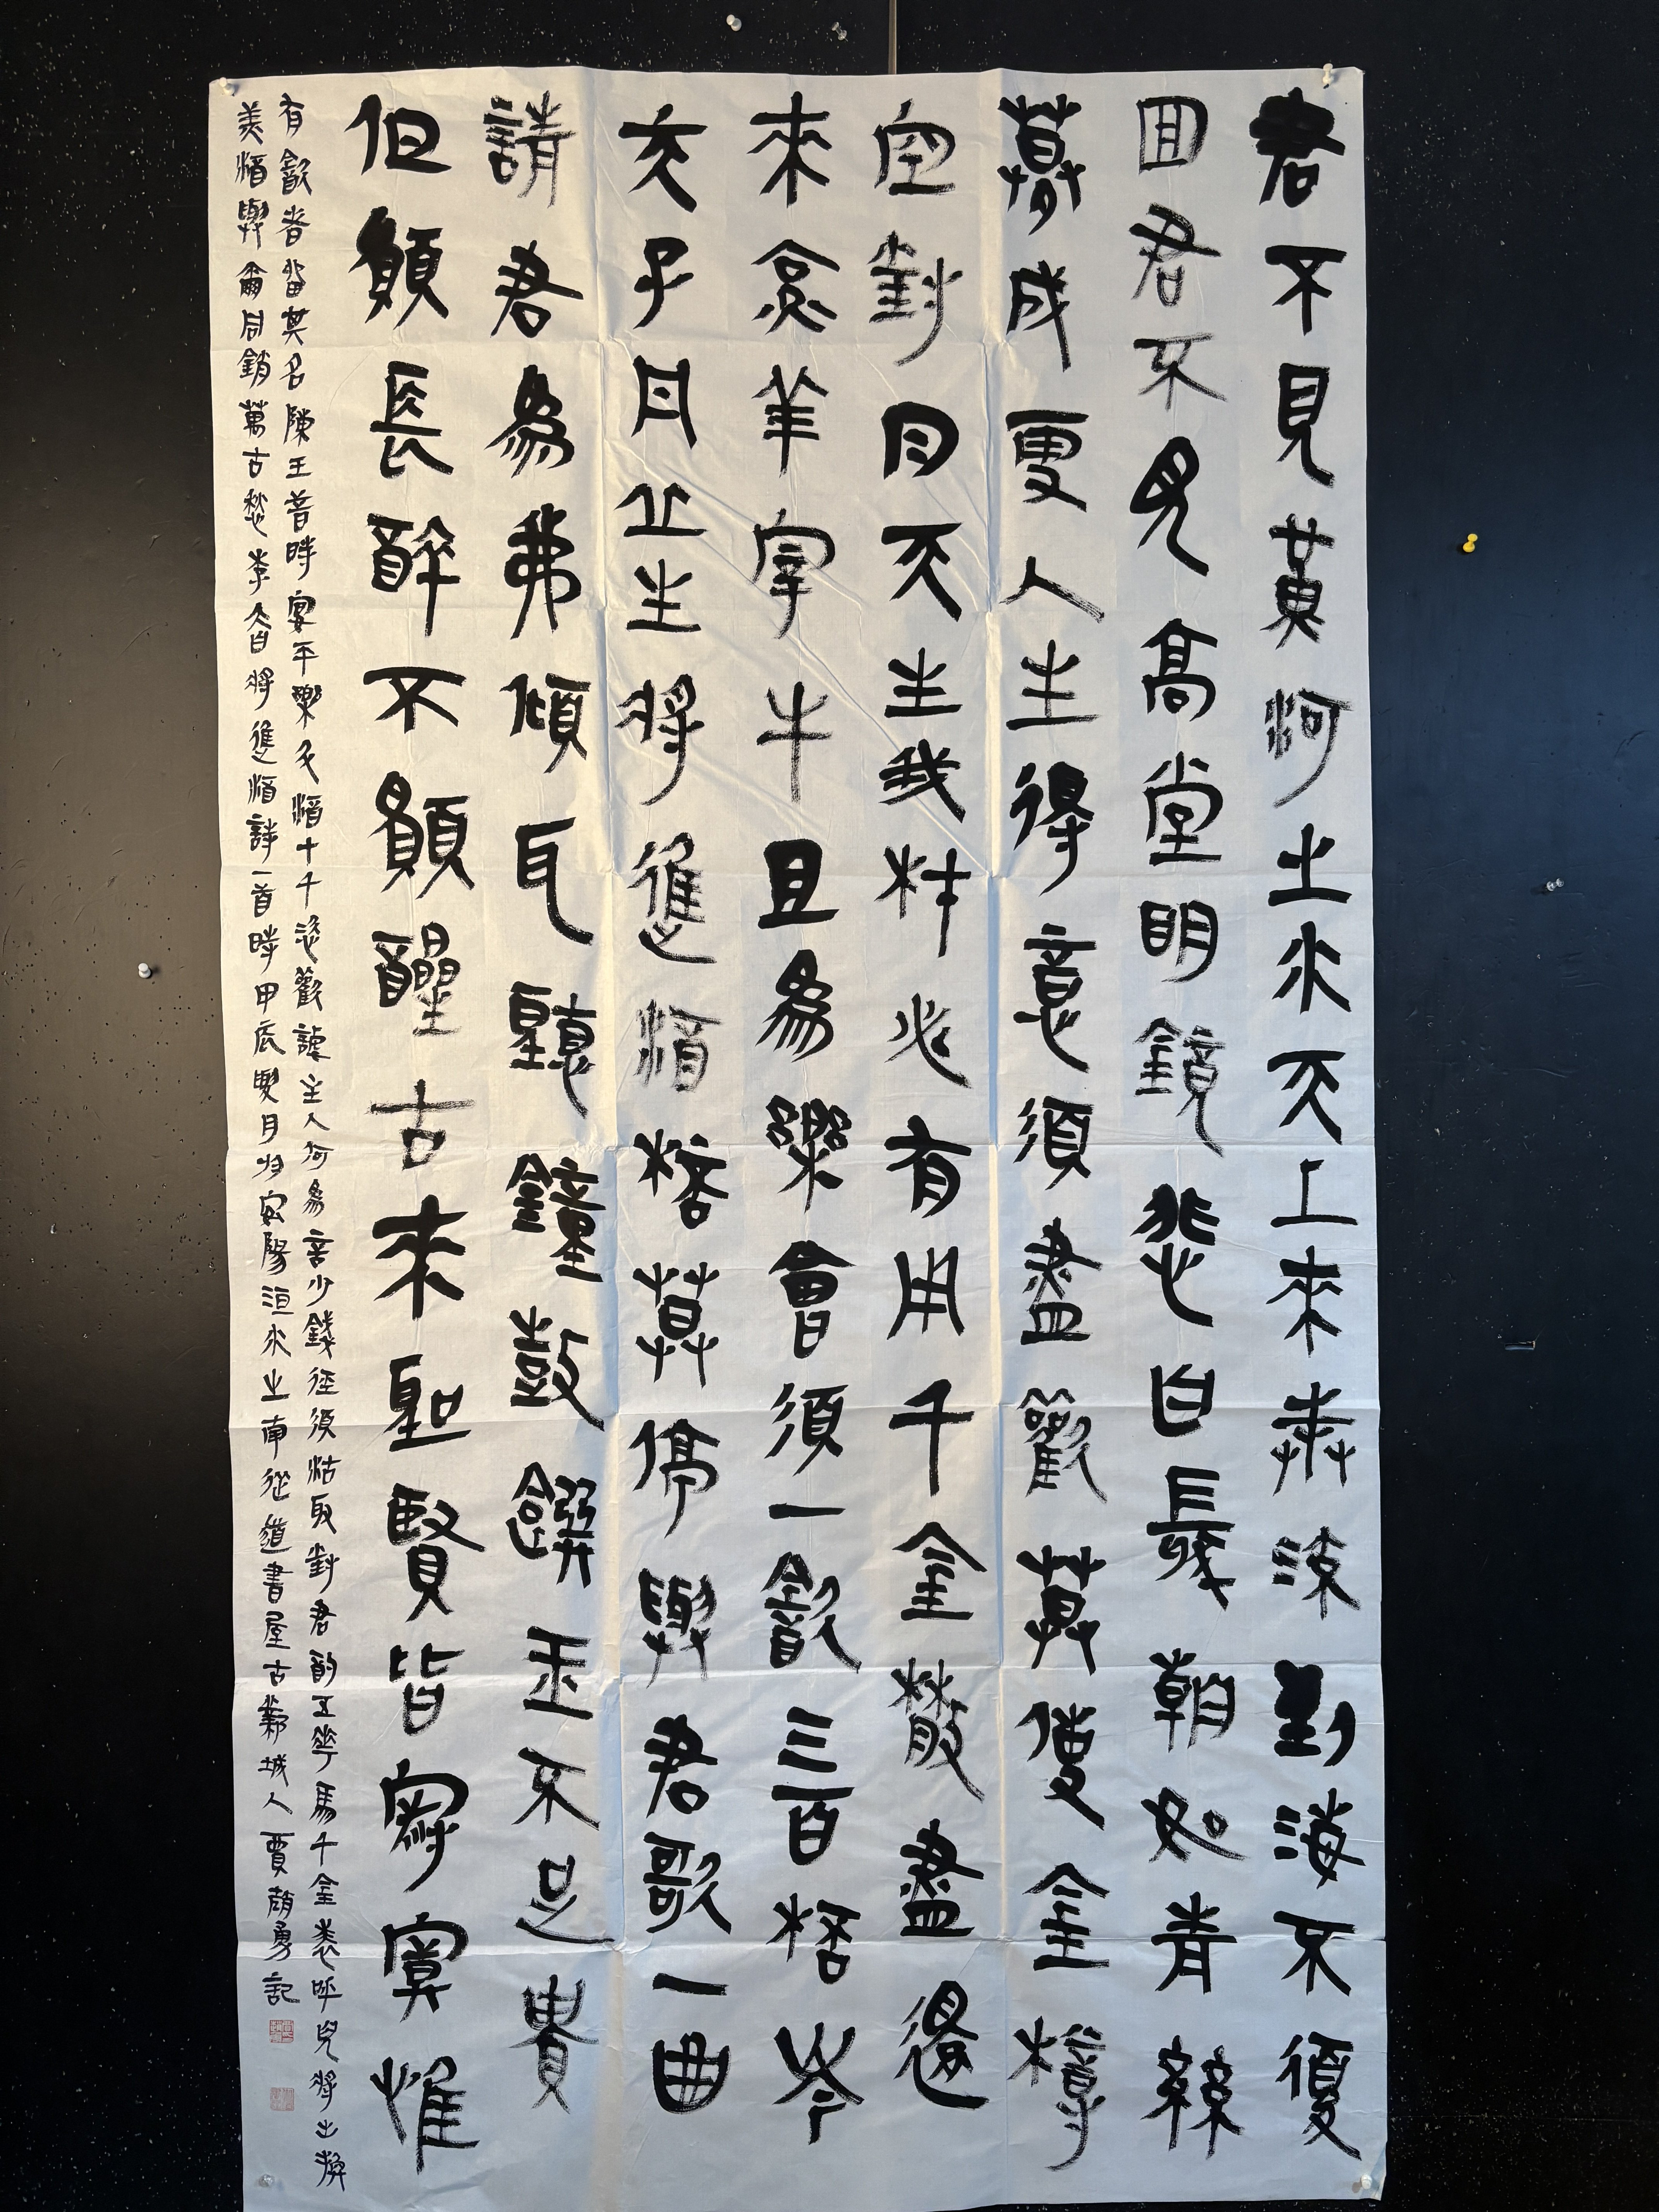 君不見黃河之水天上來奔流到海不復
回君不見高堂明鏡悲白髮朝如青絲
暮成雪人生得意須盡歡莫使金樽
空對月天生我材必有用千金散盡還
來烹羊宰牛且為樂會須一飲三百杯岑
夫子丹丘生將進酒杯莫停與君歌一曲
請君為弗傾耳聽鐘鼓饌玉不足貴
但願長醉不願醒古來聖賢皆寂寞惟
有飲者留其名陳王昔時宴平樂斗酒十千恣歡謔主人何為言少錢徑須沽取對君酌五花馬千金裘呼兒將出換
美酒與爾同銷萬古愁李太白將進酒詩一首時甲辰月於安陽洹水之南從道書屋古鄴城人賈勇記